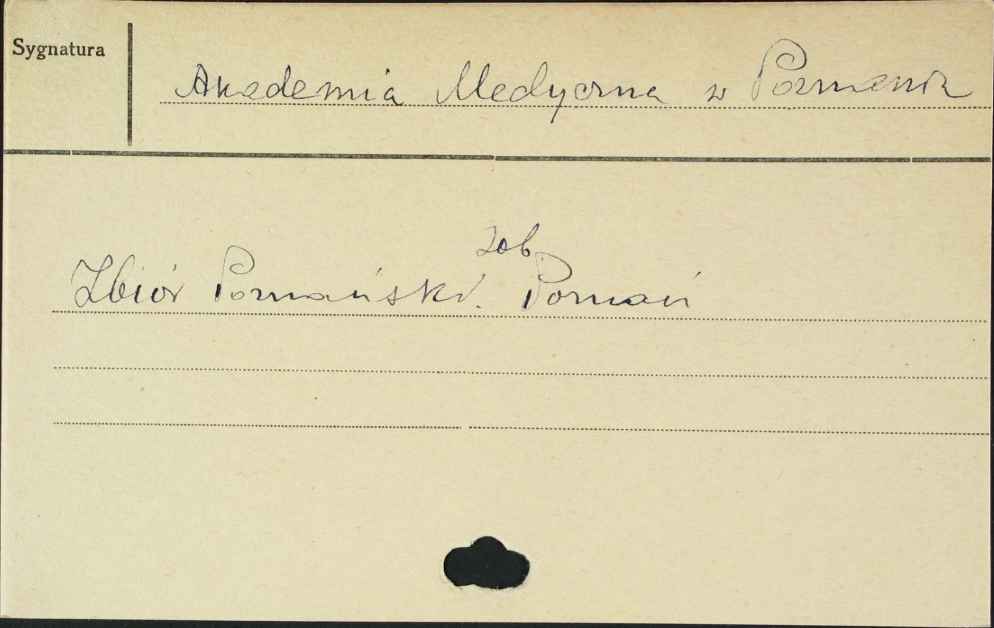 Sygnatura
Akademia Medyczna w Poznaniu
zob.
Zbiór Poznański. Poznań